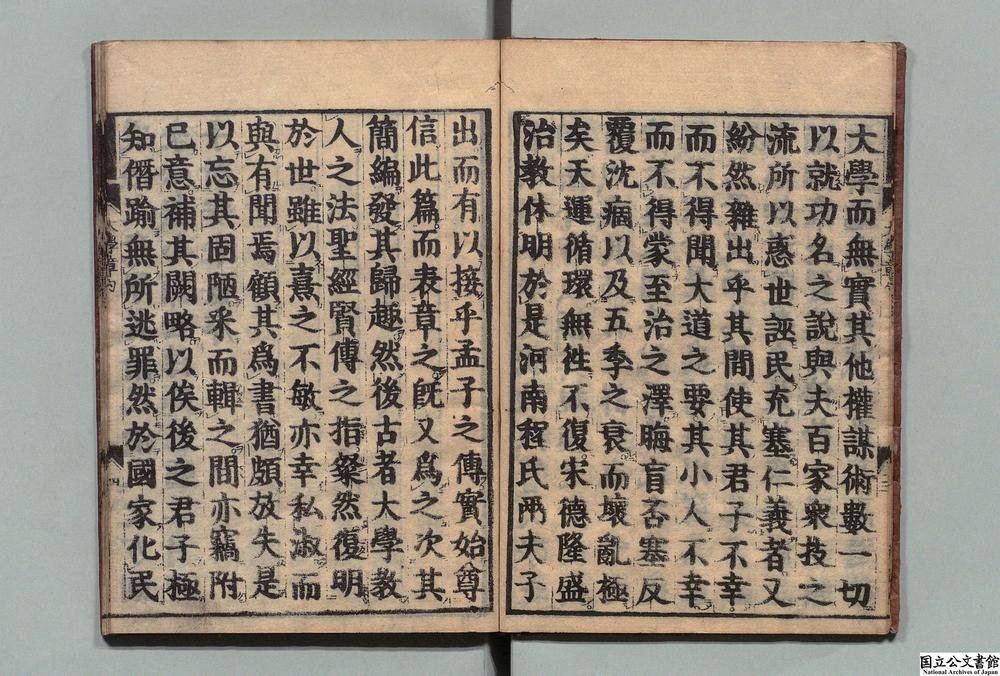 大學而無實其他權謀術數一切
以就功名之說與夫百家衆技之
流所以惑世誣民充塞仁義者又
紛然雜出乎其間使其君子不幸
而不得聞大道之要其小人不幸
而不得蒙至治之澤晦盲否塞反
覆沈痼以及五季之衰而壞亂極
矣天運循環無徃不復宋德隆盛
治教休明於是河南程氏兩夫子
出而有以接乎孟子之傳實始尊
信此篇而表章之旣又爲之次其
簡編發其歸趣然後古者大學教
人之法聖經賢傳之指粲然復明
於世雖以熹之不敏亦幸私淑而
與有聞焉顧其爲書猶頗放失是
以忘其固陋采而輯之間亦竊附
己意補其闕略以俟後之君子極
知僭踰無所逃罪然於國家化民
国立公文書館
National Archives of Japan